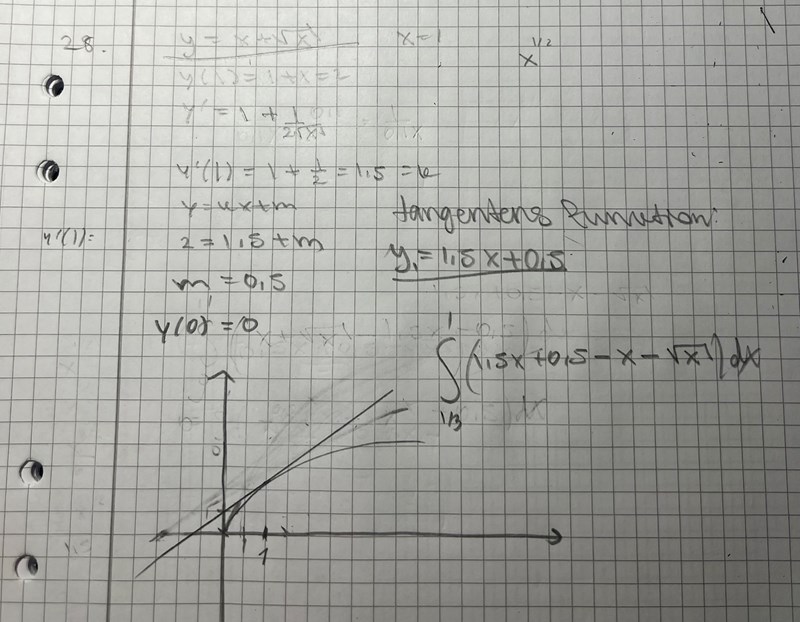 28. y = x + √x x = 1 x^1/2
y(1) = 1 + x = 2
y' = 1 + 1/2√x
y'(1) = 1 + 1/2 = 1,5 = k
y = kx + m tangentens funktion:
y'(1) = 2 = 1,5 + m y₁ = 1,5x + 0,5
m = 0,5
y(0) = 0
∫ 1/3 1 (1,5x + 0,5 - x - √x) dx
1